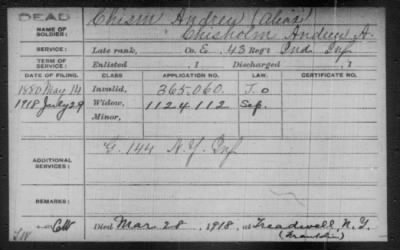 DEAD
NAME OF SOLDIER: Chism Andrew (Alias)
Chisholm Andrew A.
SERVICE: Late rank, Co. E, 43 Reg't Ind. Inf
TERM OF SERVICE: Enlisted , 1 Discharged , 1
DATE OF FILING. CLASS APPLICATION NO. LAW. CERTIFICATE NO.
1880 May 14 Invalid, 365.060. J.O
1918 July 29 Widow, 1124.112 Sep.
Minor,
ADDITIONAL SERVICES: G. 144 N.Y. Inf
REMARKS:
C.W Died Mar. 28, 1918, at Treadwell, N.Y.
(Franklin)